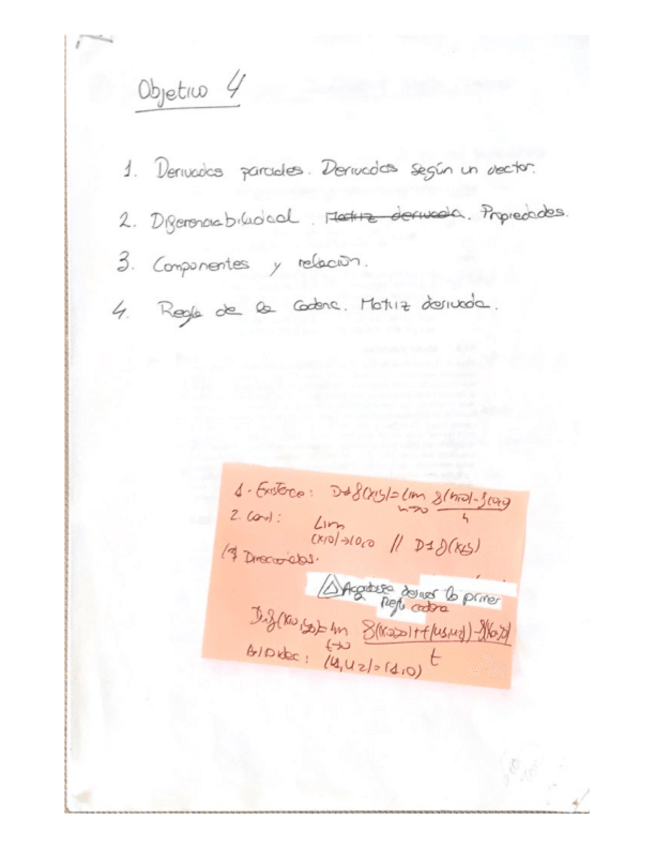 Objetivo 4
1. Derivadas parciales. Derivadas según un vector.
2. Diferenciabilidad. Matriz derivada. Propiedades.
3. Componentes y relación.
4. Regla de la Cadena. Matriz derivada.
1. Existence: D1f(x,y)=lim h→0 f(h,0)-f(0,0) / h
2. Cont:
Lim (x,0)→(0,0 // D1f(x,y)
(*) Direccionales.
primer
Regla cadena
lim t→0 f((x0,y0)+t(u1,u2))-f(x0,y0) / t
(u1,u2)=(1,0)